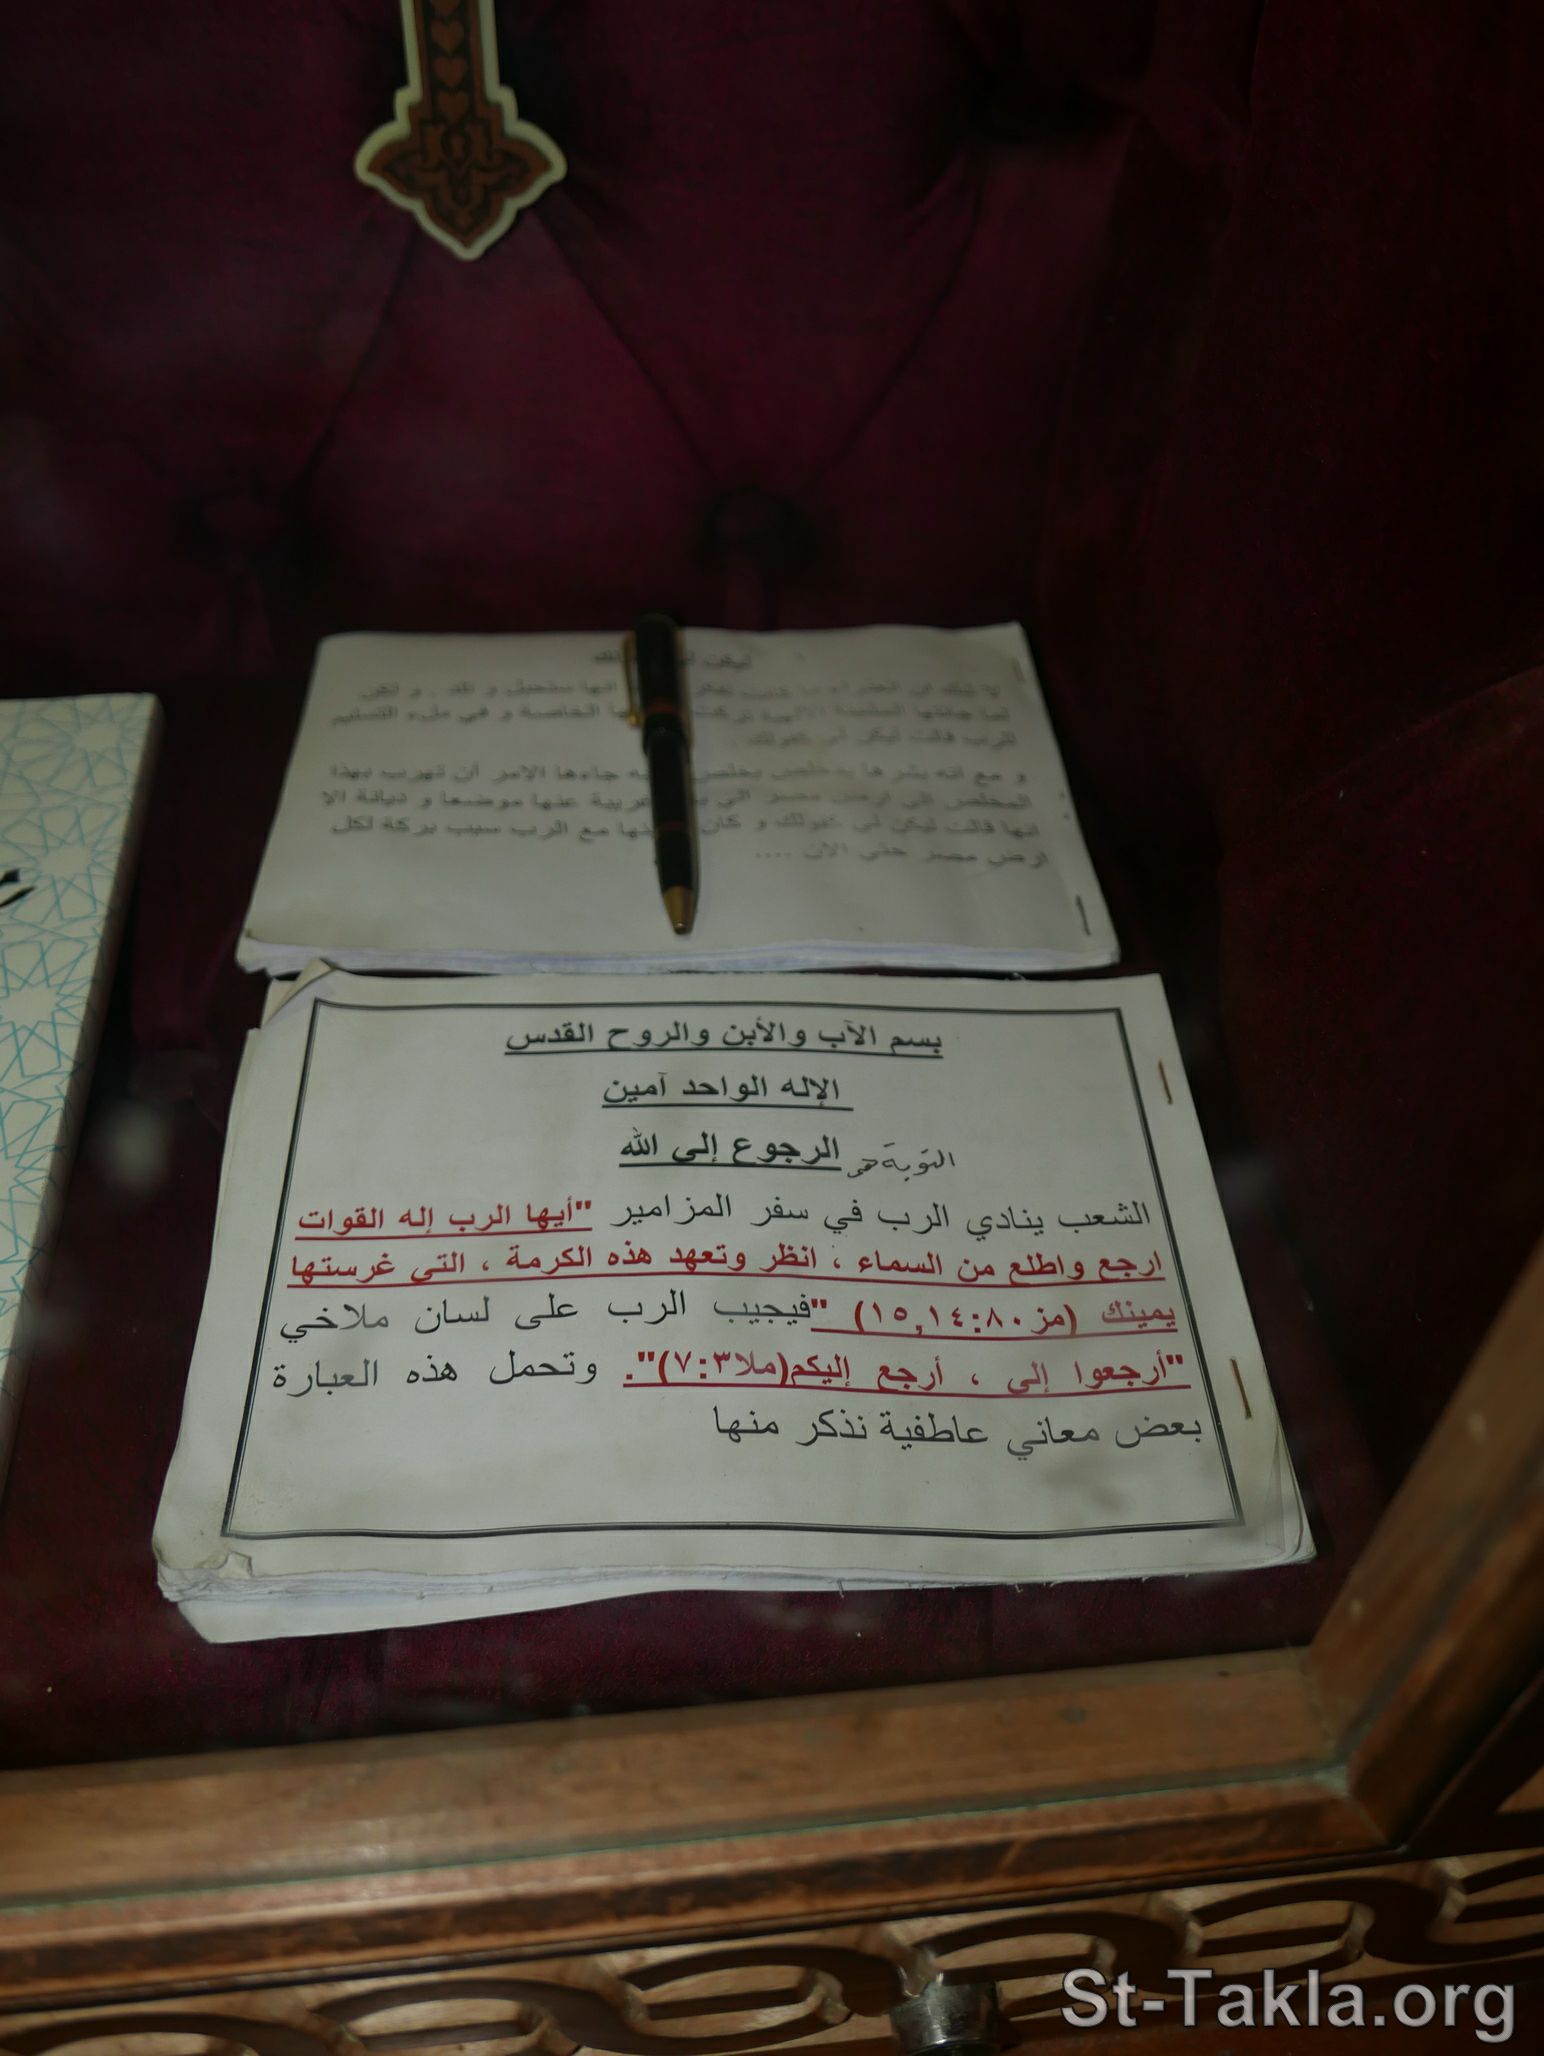 ليكن لي
لا شك ان العذراء ما كانت تفكر انها ستحبل و تلد . و لكن
لما جائتها المشيئة الالهية تركت الخاصة و في ملء التسليم
للرب قالت ليكن لي كقولك .
و مع انه بشرها بمخلص يخلص جاءها الامر أن تهرب بهذا
المخلص إلى ارض مصر الى غريبة عنها موضعا و ديانة الا
انها قالت ليكن لي كقولك و كان مع الرب سبب بركة لكل
ارض مصر حتى الان ....
بسم الآب والأبن والروح القدس
الإله الواحد آمين
التوبة هى الرجوع إلى الله
الشعب ينادي الرب في سفر المزامير "أيها الرب إله القوات
ارجع واطلع من السماء ، انظر وتعهد هذه الكرمة ، التي غرستها
يمينك (مز٨٠:١٤,١٥) "فيجيب الرب على لسان ملاخي
"أرجعوا إلى ، أرجع إليكم(ملا٣:٧)". وتحمل هذه العبارة
بعض معاني عاطفية نذكر منها
St-Takla.org